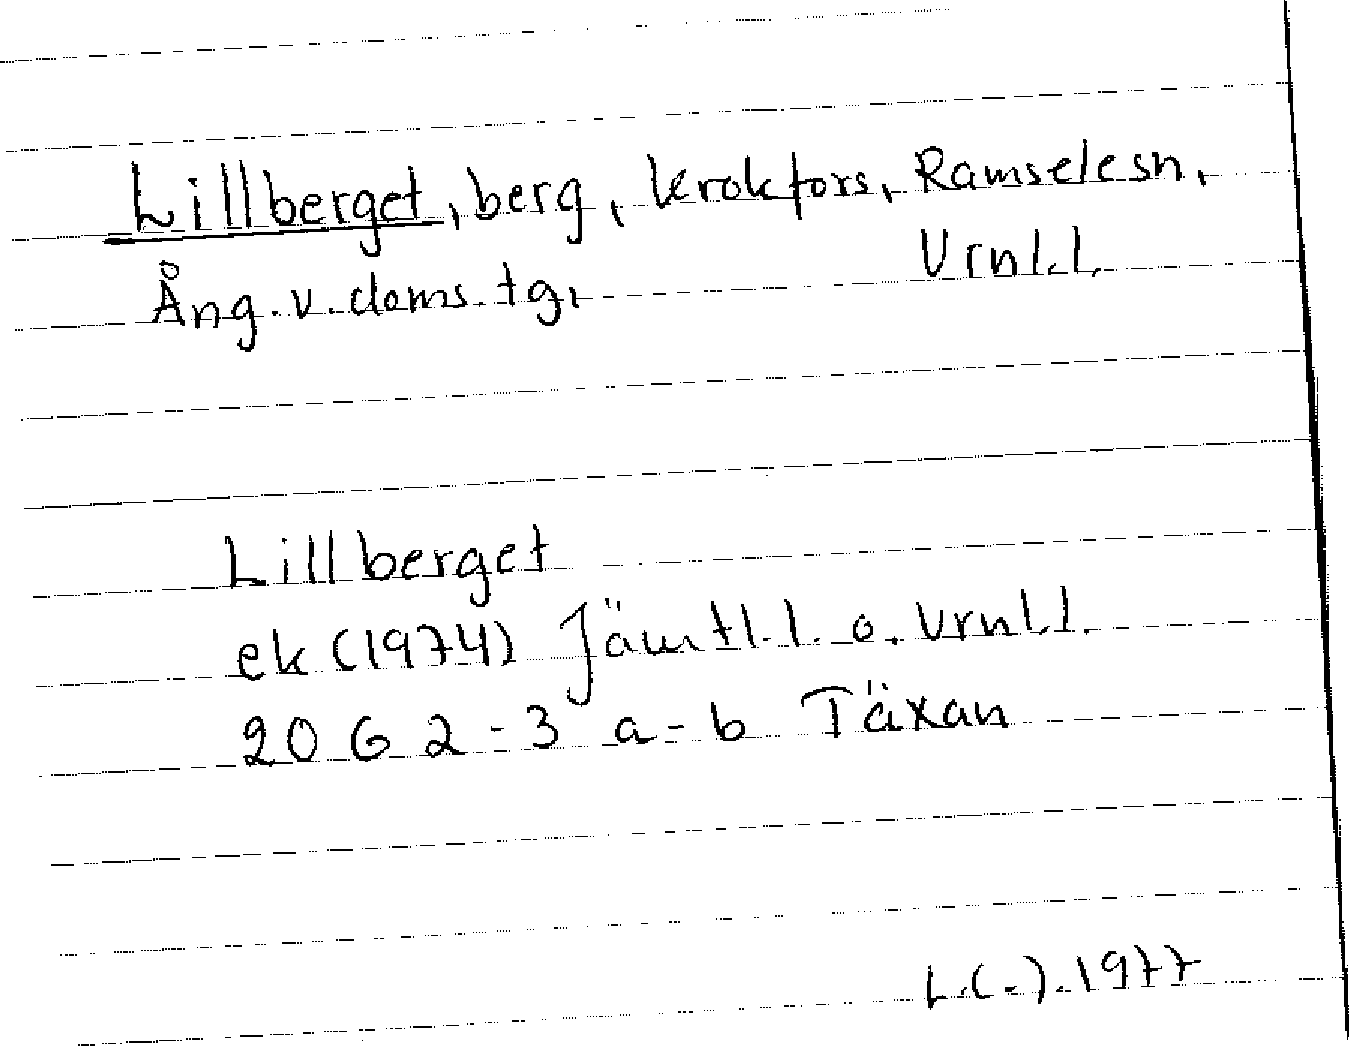 Lillberget, berg, Krokfors, Ramselesn,
Ång. v. doms. tg, Vrnl.l.
Lillberget
ek (1974) Jämtl.l. o. Vrnl.l.
20 G 2-3 a-b Täxan
L.(-).1977